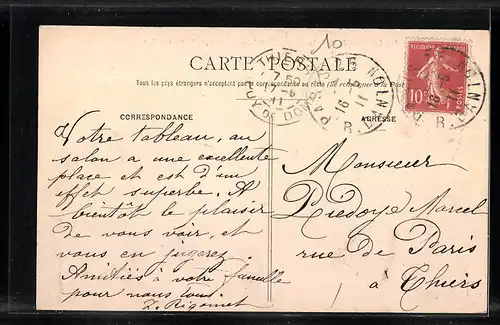 10
CARTE POSTALE
Tous les pays étrangers n'acceptent pas la correspondance au recto (se renseigner à la Poste)
CORRESPONDANCE
ADRESSE
THIERS
PUY DE DOME
R.
10
R.
Votre tableau, au
salon a une excellente
place et est d'un
effet superbe. A
bientôt le plaisir
de vous voir, et
vous en jugerez.
Amitiés à votre famille
pour nous tous.
Monsieur
Marcel
rue de Paris
à Thiers